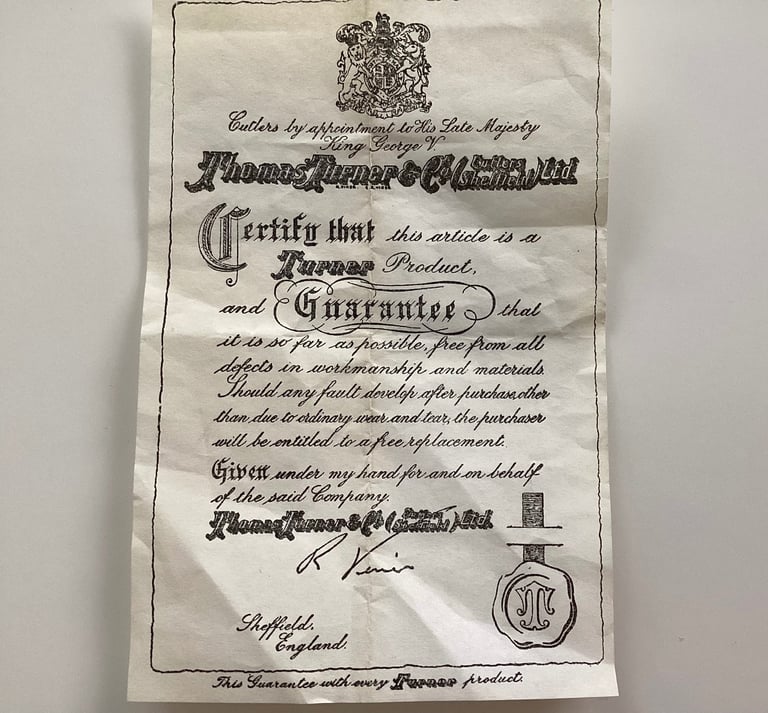 Cutlers by appointment to His Late Majesty
King George V.
Thomas Turner & Co. (Cutlers Sheffield) Ltd.
Certify that this article is a
Turner Product,
and Guarantee that
it is so far as possible, free from all
defects in workmanship and materials.
Should any fault develop after purchase, other
than, due to ordinary wear and tear, the purchaser
will be entitled to a free replacement.
Given under my hand for and on behalf
of the said Company.
Thomas Turner & Co. (Cutlers Sheffield) Ltd.
R
T
Sheffield.
England.
This Guarantee with every Turner product.